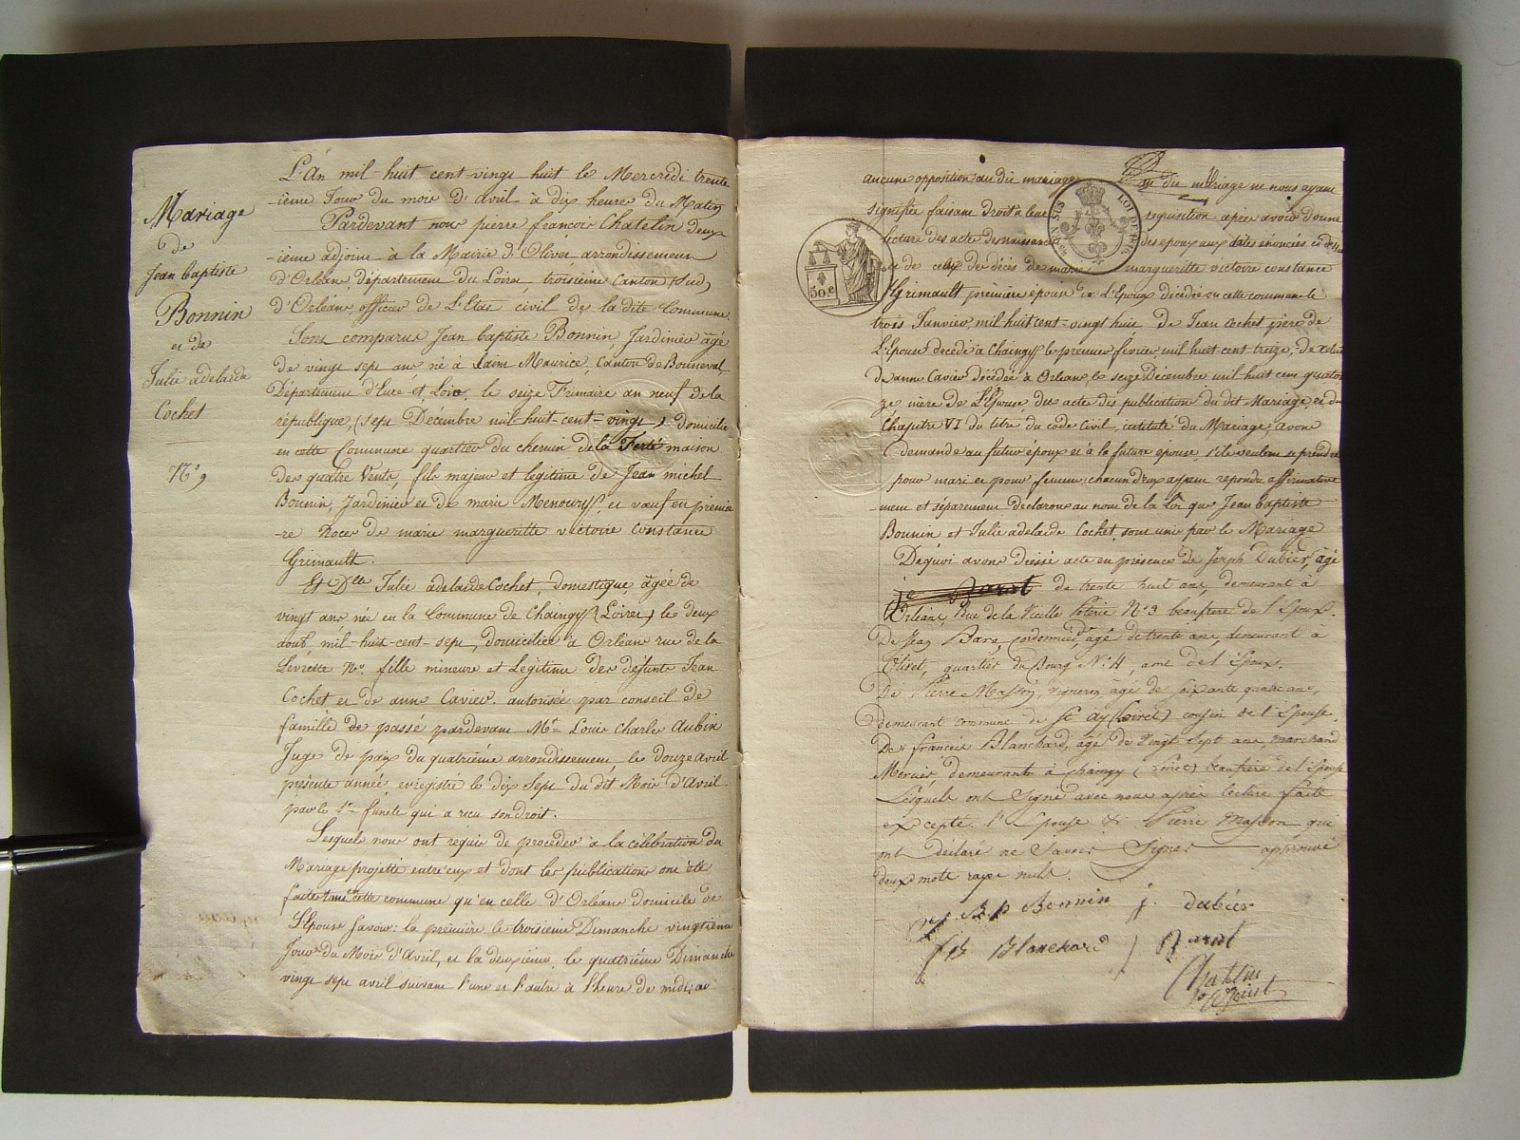 Mariage
de
Jean baptiste
Bonnin
et de
Julie adelaide
Cochet
N.º 9
L'An mil-huit cent-vingt huit le Mercredi trente
-ième Jour du mois d'avril à dix heures du Matin
Pardevant nous pierre françois Chatelin deux
-ième adjoint à la Mairie d'Olivet arrondissement
d'Orléans, département du Loiret, troisième Canton (Sud)
d'Orléans officier de L'Etat civil de la dite Commune
Sont comparus Jean baptiste Bonnin Jardinier âgé
de vingt sept ans né à Saint Maurice, Canton de Bonneval,
Département d'Eure et Loir, le seize Frimaire an neuf de la
république, (sept Décembre mil-huit-cent-vingt) domicilié
en cette Commune quartier du chemin de la Ferté maison
des quatre Vents, fils majeur et legitime de Jean michel
Bonnin, Jardinier et de marie Menouvrf, et vœuf en premiè
-re Noces de marie margueritte victoire Constance
Grimault.
Et D.lle Julie adelaide Cochet, domestique, âgée de
vingt ans née en la Commune de Chaingy (Loiret) le deux
aout mil-huit-cent-sept, domiciliée à Orléans rue de la
Levrette N.º fille mineure et Legitime des défunts Jean
Cochet et de anne Cavier. autorisée par conseil de
famille de passé pardevant M.r Louis Charles Aubin
Juge de paix du quatrième arrondissement, le douze avril
présente année, enregistré le dix Sept du dit Mois d'Avril
par le S.r funele qui a recu son droit.
Lesquels nous ont requis de proceder à la célébration du
Mariage projetté entre eux et dont les publications ont été
faites tant en cette commune qu'en celle d'Orléans domicile de
L'Epouse Savoir: la première le troisieme Dimanche vingtième
Jour du Mois d'Avril, et la deuxième, le quatrième Dimanche
vingt sept avril suivant l'une et l'autre à l'heure de midi, au
aucune opposition au dit mariage du dit mariage ne nous ayant
signifiée faisant droit à leur requisition après avoir donné
lecture des actes de naissances des epoux aux dates énoncées ci dessus
et de celui de décès de marie margueritte victoire constance
Grimault première épouse de L'Epoux décédée en cette commune le
trois Janvier mil huit cent-vingt huit de Jean Cochet père de
L'Epouse decedé à Chaingy le premier fevrier, mil huit cent treize, de celui
de anne Cavier décédée à Orléans, le seize Décembre mil huit cent quator
ze mère de L'Epouse des actes des publications du dit Mariage, et du
Chapitre VI du titre du code Civil, intitulé du Mariage, avons
demandé au futur époux et à la future épouse, s'ils veulent se prendre
pour mari et pour femme; chacun d'eux ayant repondu affirmative
ment et séparément declarons au nom de la Loi que Jean baptiste
Bonnin et Julie adelaide Cochet, sont unis par le Mariage
De quoi avons dressé acte en présence de Joseph Dubier, âgé
de trente huit ans, demeurant à
Orléans, Rue de la Vieille Poterie N.º 3 beaufrere de l'Epoux.
De Jean Bara, cordonnier, âgé de trente ans, demeurant à
Olivet, quartier du Bourg N.º 4, ami de l'Epoux.
De Pierre Masson, vigneron, âgé de soixante quatre ans,
demeurant commune de St ay (Loiret) cousin de l'Epouse,
De françois Blanchard, âgé de Vingt Sept ans, marchand
Mercier, demeurant à chaingy (Loiret) beaufrère de l'Epouse
Lesquels ont Signé avec nous après lecture faite
excepté l'Epouse & Pierre Masson qui
ont déclaré ne Savoir Signer approuvé
deux mots rayé nuls.
30.c
J. B. P Bonnin j. dubier
f B Blanchard Barat
Chatelin
Adjoint